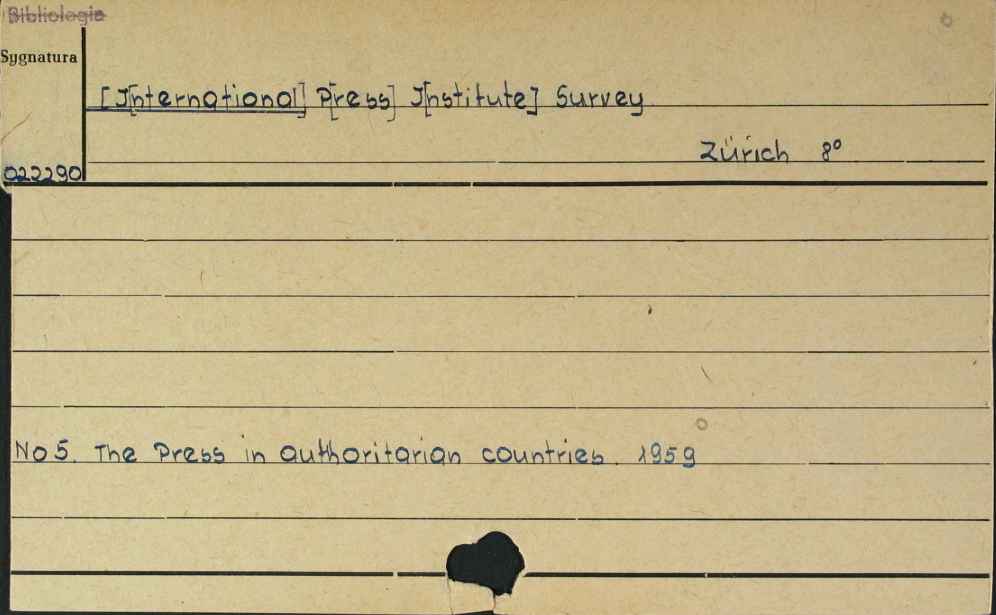 Bibliologia
Sygnatura
[I[nternational] P[ress] I[nstitute] Survey
Zürich 8°
022290
No 5. The Press in authoritarian countries. 1959